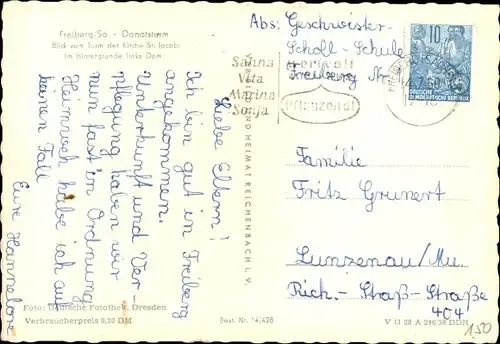 Freiberg/Sa. - Donatsturm
Blick vom Turm der Kirche St. Jacobi
im Hintergrunde links Dom
Liebe Eltern!
Ich bin gut in Freiberg
angekommen.
Unterkunft und Ver-
pflegung haben wir
nun fast in Ordnung
Heimweh habe ich auf
keinen Fall
Eure Hannelore
Foto: Deutsche Fotothek, Dresden
Verbraucherpreis 0,20 DM
Best. Nr. 14/428
VERLAG BILD UND HEIMAT REICHENBACH I. V.
Abs: Geschwister-
Scholl-Schule
Freiberg
Sahna
Vita
Marina
Sonja
Pflanzenöl
10
DEUTSCHE
DEMOKRATISCHE REPUBLIK
Familie
Fritz Grunert
Lunzenau/Mu.
Rich.-Straß-Straße
404
V 11 28 A 246/59 DDR
1,50